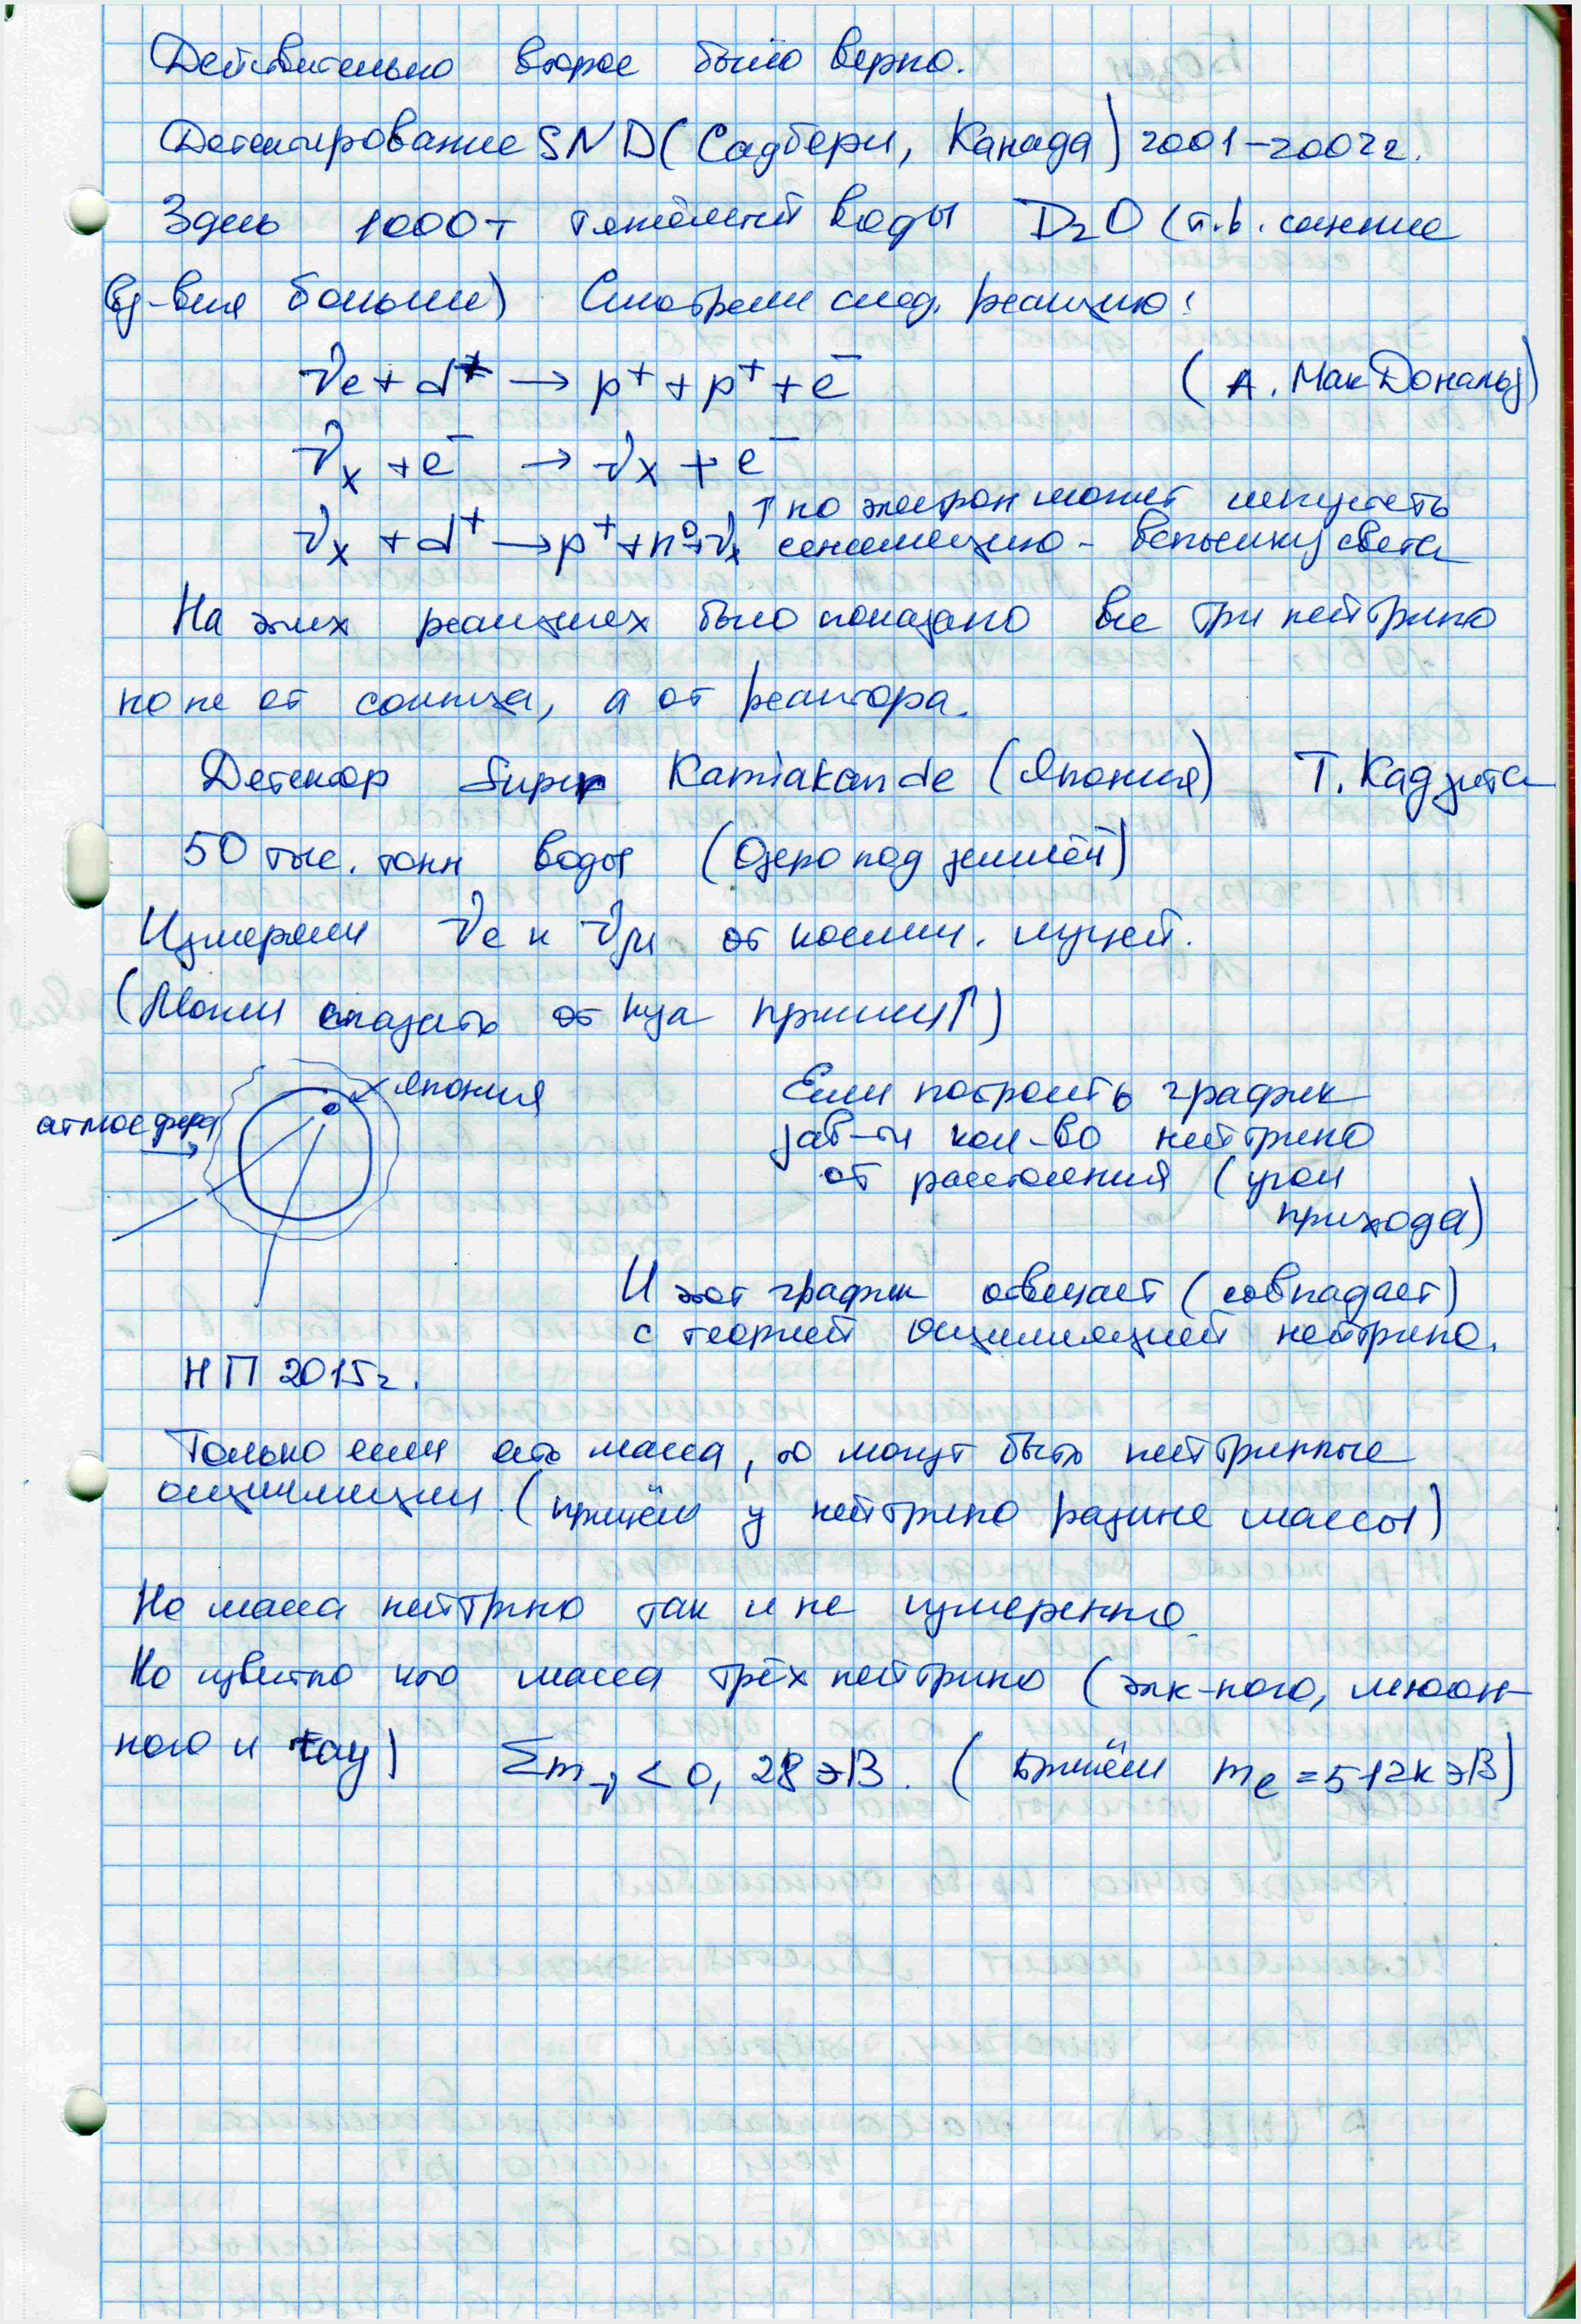 Действительно второе было верно.
Детектирование SND (Садбери, Канада) 2001-2002г.
Здесь 1000т тяжёлой воды D₂O (т.к. сечение
вз-вия больше) Смотрели след. реакцию:
νe + d⁺ → p⁺ + p⁺ + e⁻ (А. МакДональд)
νx + e⁻ → νx + e⁻
↑ но электрон может испускать
νx + d⁺ → p⁺ + n⁰ + νx сцинтиляцию - вспышку света
На этих реакциях было показано все три нейтрино
но не от солнца, а от реактора.
Детектор Super Kamiakande (Япония) Т. Кадзита
50 тыс. тонн воды (Озеро под землёй)
Измеряли νe и νμ от космич. лучей.
(Можем сказать откуда пришли↑)
Япония
атмосфера
Если построить график
зав-ти кол-во нейтрино
от расстояния (угол
прихода)
И этот график отвечает (совпадает)
с теорией осцилляцией нейтрино.
НП 2015г.
Только если есть масса, то могут быть нейтринные
осцилляции. (причём у нейтрино разные массы)
Но масса нейтрино так и не измеренна.
Но известно что масса трёх нейтрино (элк-ного, мюон-
ного и tау) Σmν < 0,28 эВ. (причём me = 512кэВ)